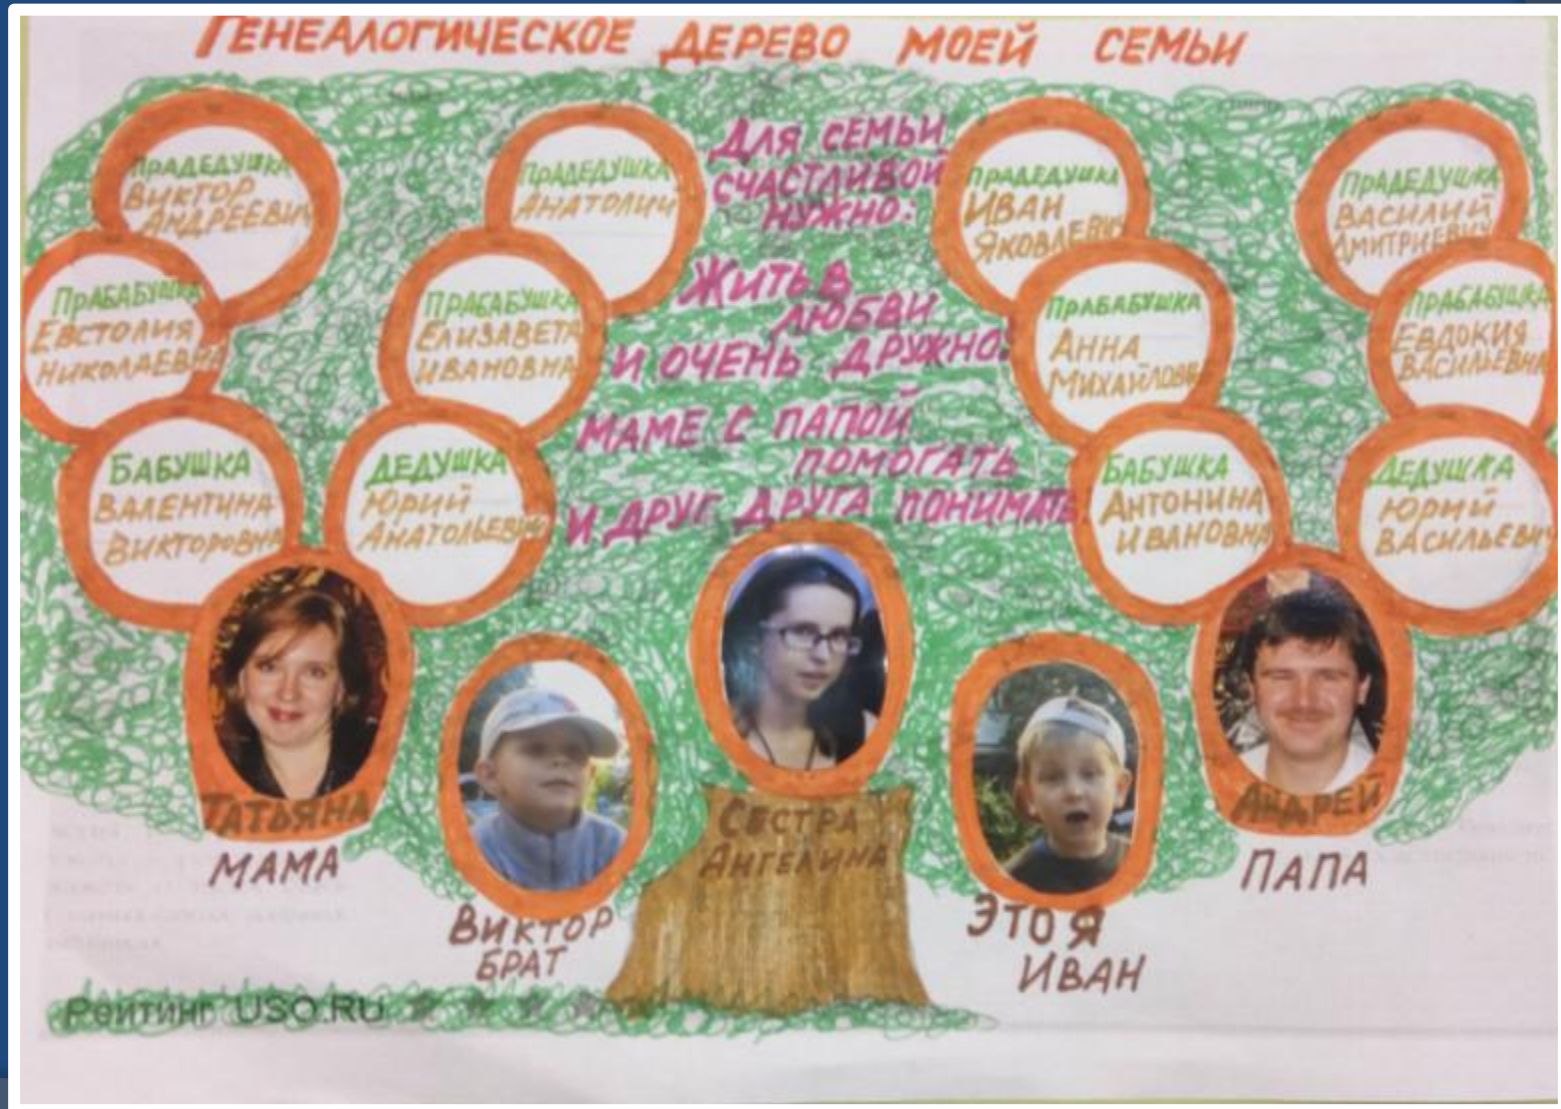 ГЕНЕАЛОГИЧЕСКОЕ ДЕРЕВО МОЕЙ СЕМЬИ
ПРАДЕДУШКА
ВИКТОР
АНДРЕЕВИЧ
ПРАБАБУШКА
ЕВСТОЛИЯ
НИКОЛАЕВНА
БАБУШКА
ВАЛЕНТИНА
ВИКТОРОВНА
ПРАДЕДУШКА
АНАТОЛИЙ
ПРАБАБУШКА
ЕЛИЗАВЕТА
ИВАНОВНА
ДЕДУШКА
ЮРИЙ
АНАТОЛЬЕВИЧ
ДЛЯ СЕМЬИ
СЧАСТЛИВОЙ
НУЖНО:
ЖИТЬ В
ЛЮБВИ
И ОЧЕНЬ ДРУЖНО.
МАМЕ С ПАПОЙ
ПОМОГАТЬ
И ДРУГ ДРУГА ПОНИМАТЬ
ПРАДЕДУШКА
ИВАН
ЯКОВЛЕВИЧ
ПРАБАБУШКА
АННА
МИХАЙЛОВНА
БАБУШКА
АНТОНИНА
ИВАНОВНА
ПРАДЕДУШКА
ВАСИЛИЙ
ДМИТРИЕВИЧ
ПРАБАБУШКА
ЕВДОКИЯ
ВАСИЛЬЕВНА
ДЕДУШКА
ЮРИЙ
ВАСИЛЬЕВИЧ
ТАТЬЯНА
МАМА
ВИКТОР
БРАТ
СЕСТРА
АНГЕЛИНА
ЭТО Я
ИВАН
АНДРЕЙ
ПАПА
Рейтинг USO.RU